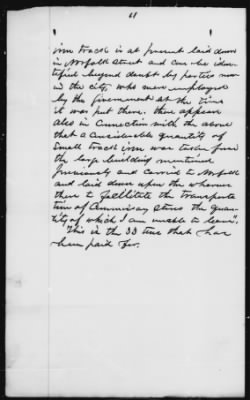 61
iron track is at present laid down
in Norfolk Street and can be iden-
tified beyond doubt by parties now
in the city, who were employed
by the Government at the time
it was put there. there appears
also in connection with the above
that a considerable quantity of
small track iron was taken from
the large building mentioned
previously and carried to Norfolk
and laid down upon the wharves
there to facilitate the transporta
tion of Commissary stores the quan-
tity of which I am unable to learn".
"This is the 33 time that has
been paid for.